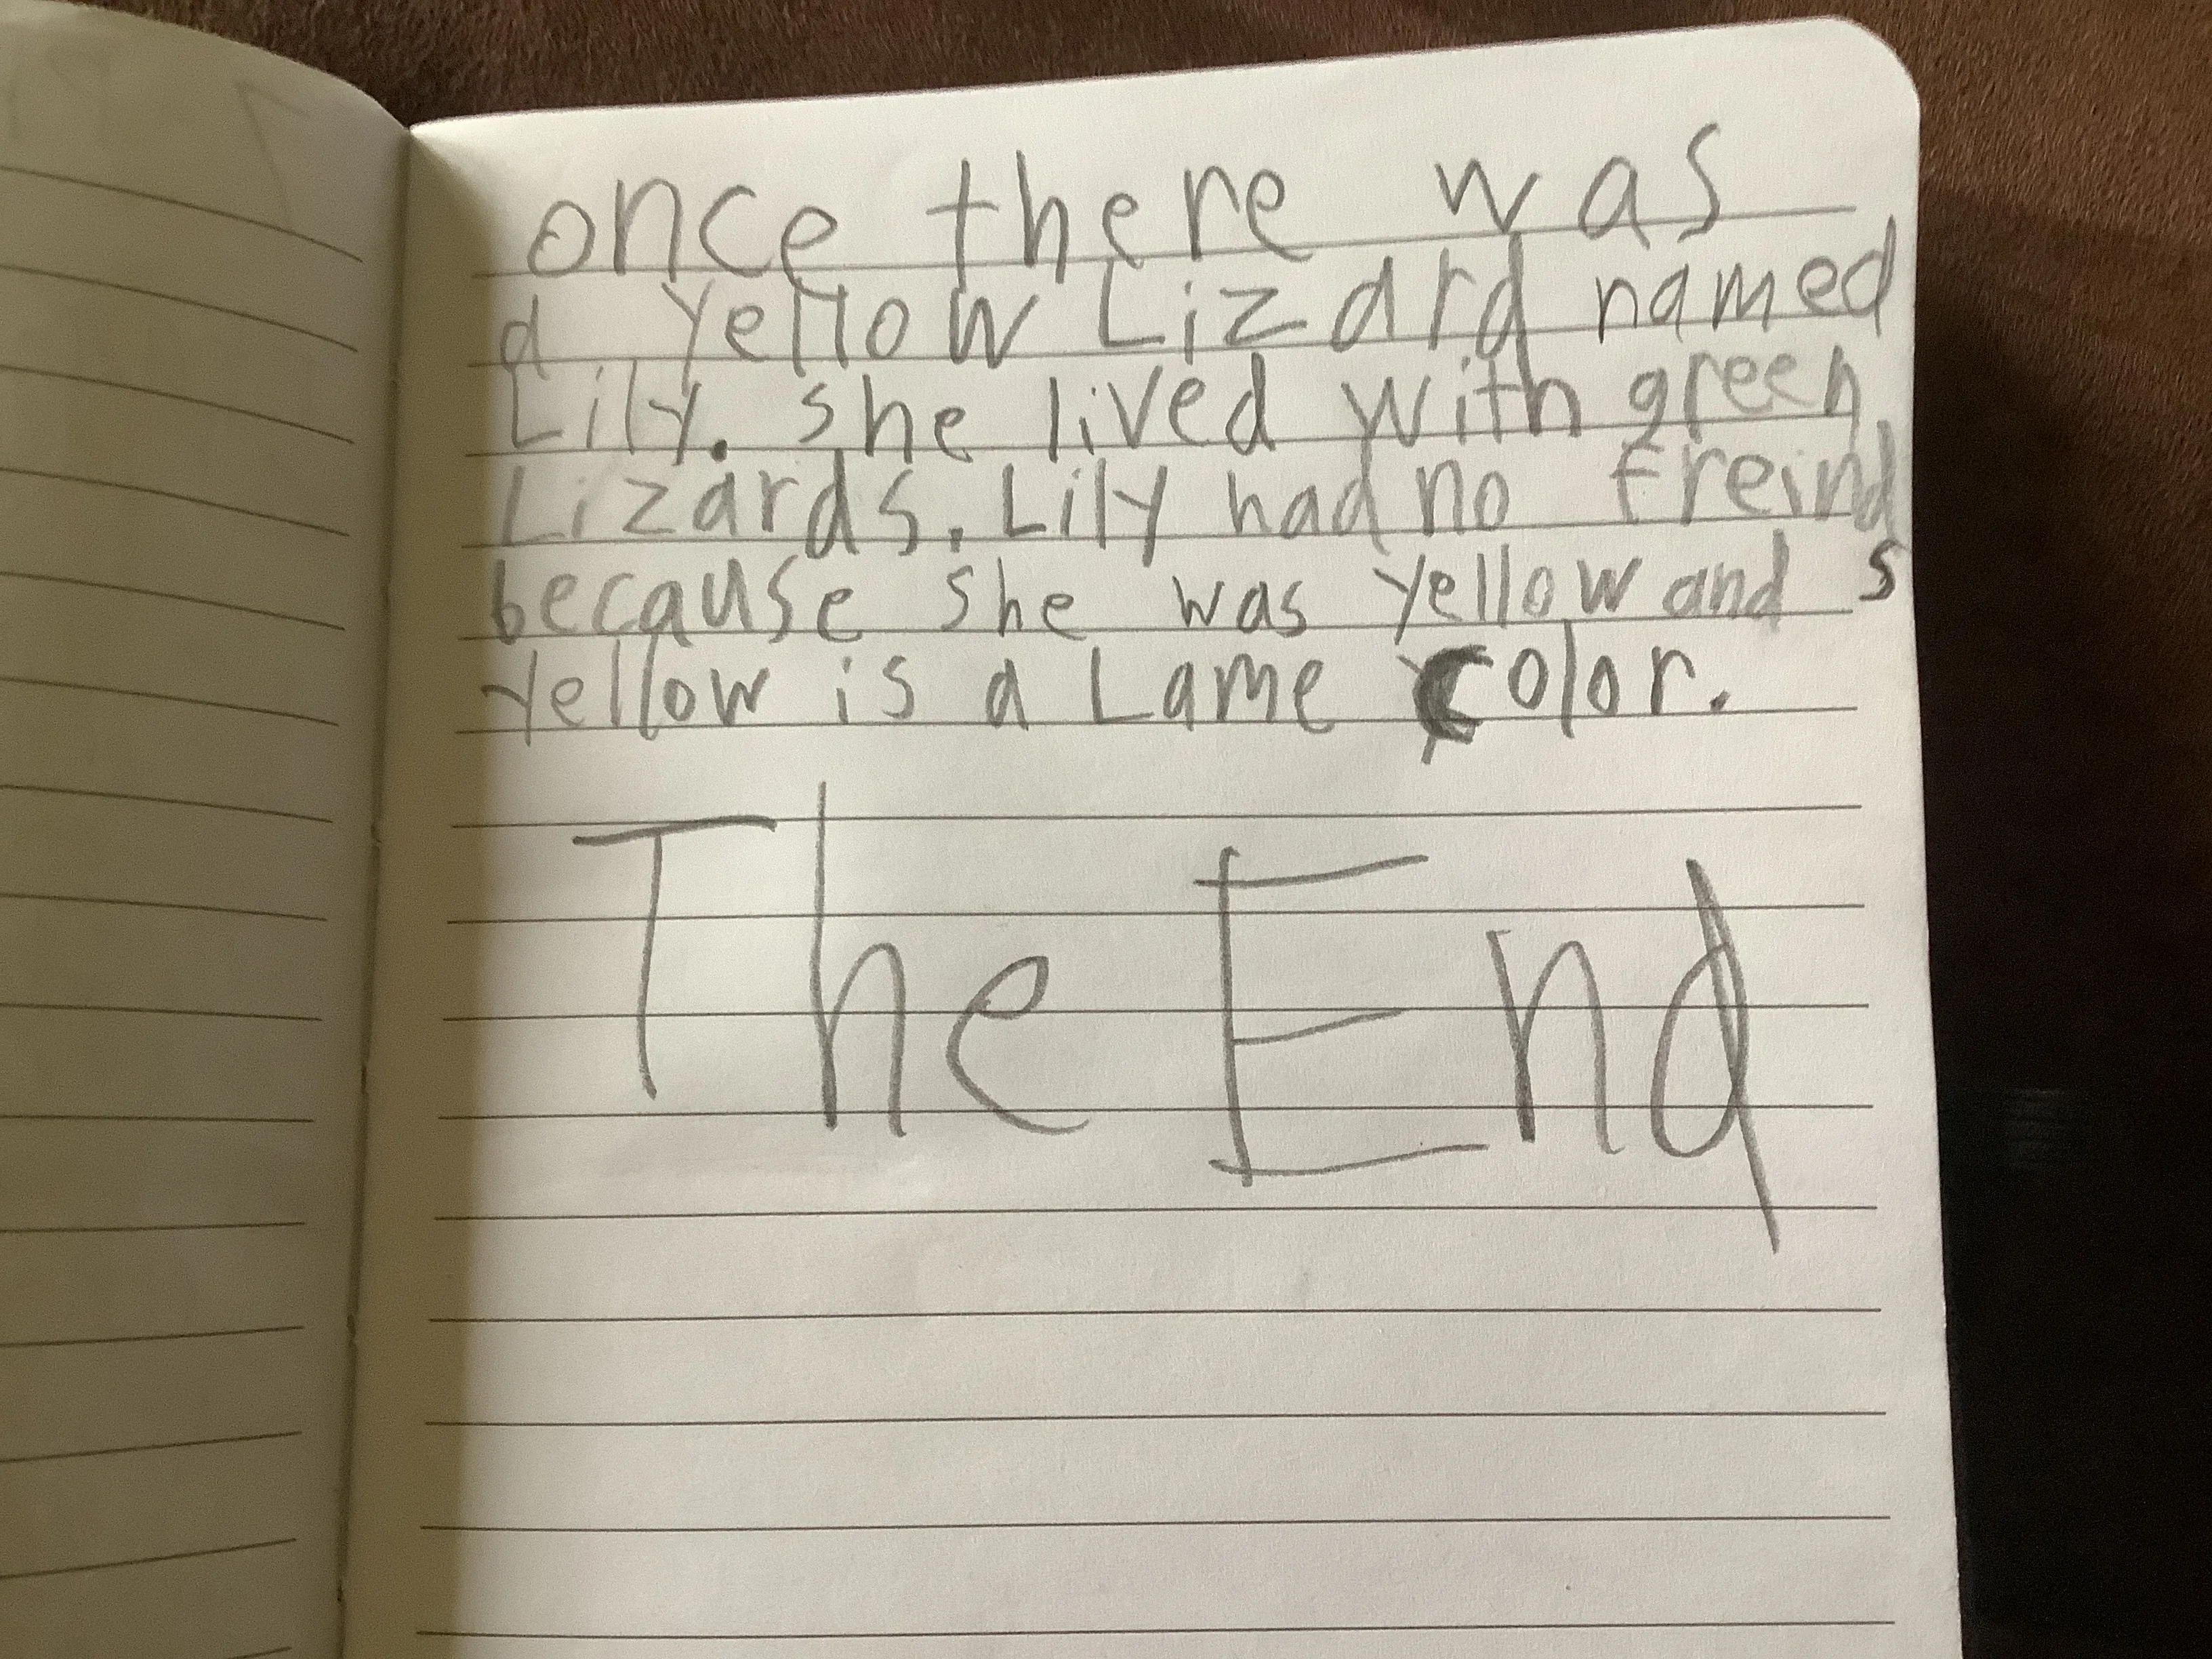 once there was
a yellow Lizard named
Lily. she lived with green
Lizards. Lily had no freinds
because she was yellow and
yellow is a Lame color.
The End